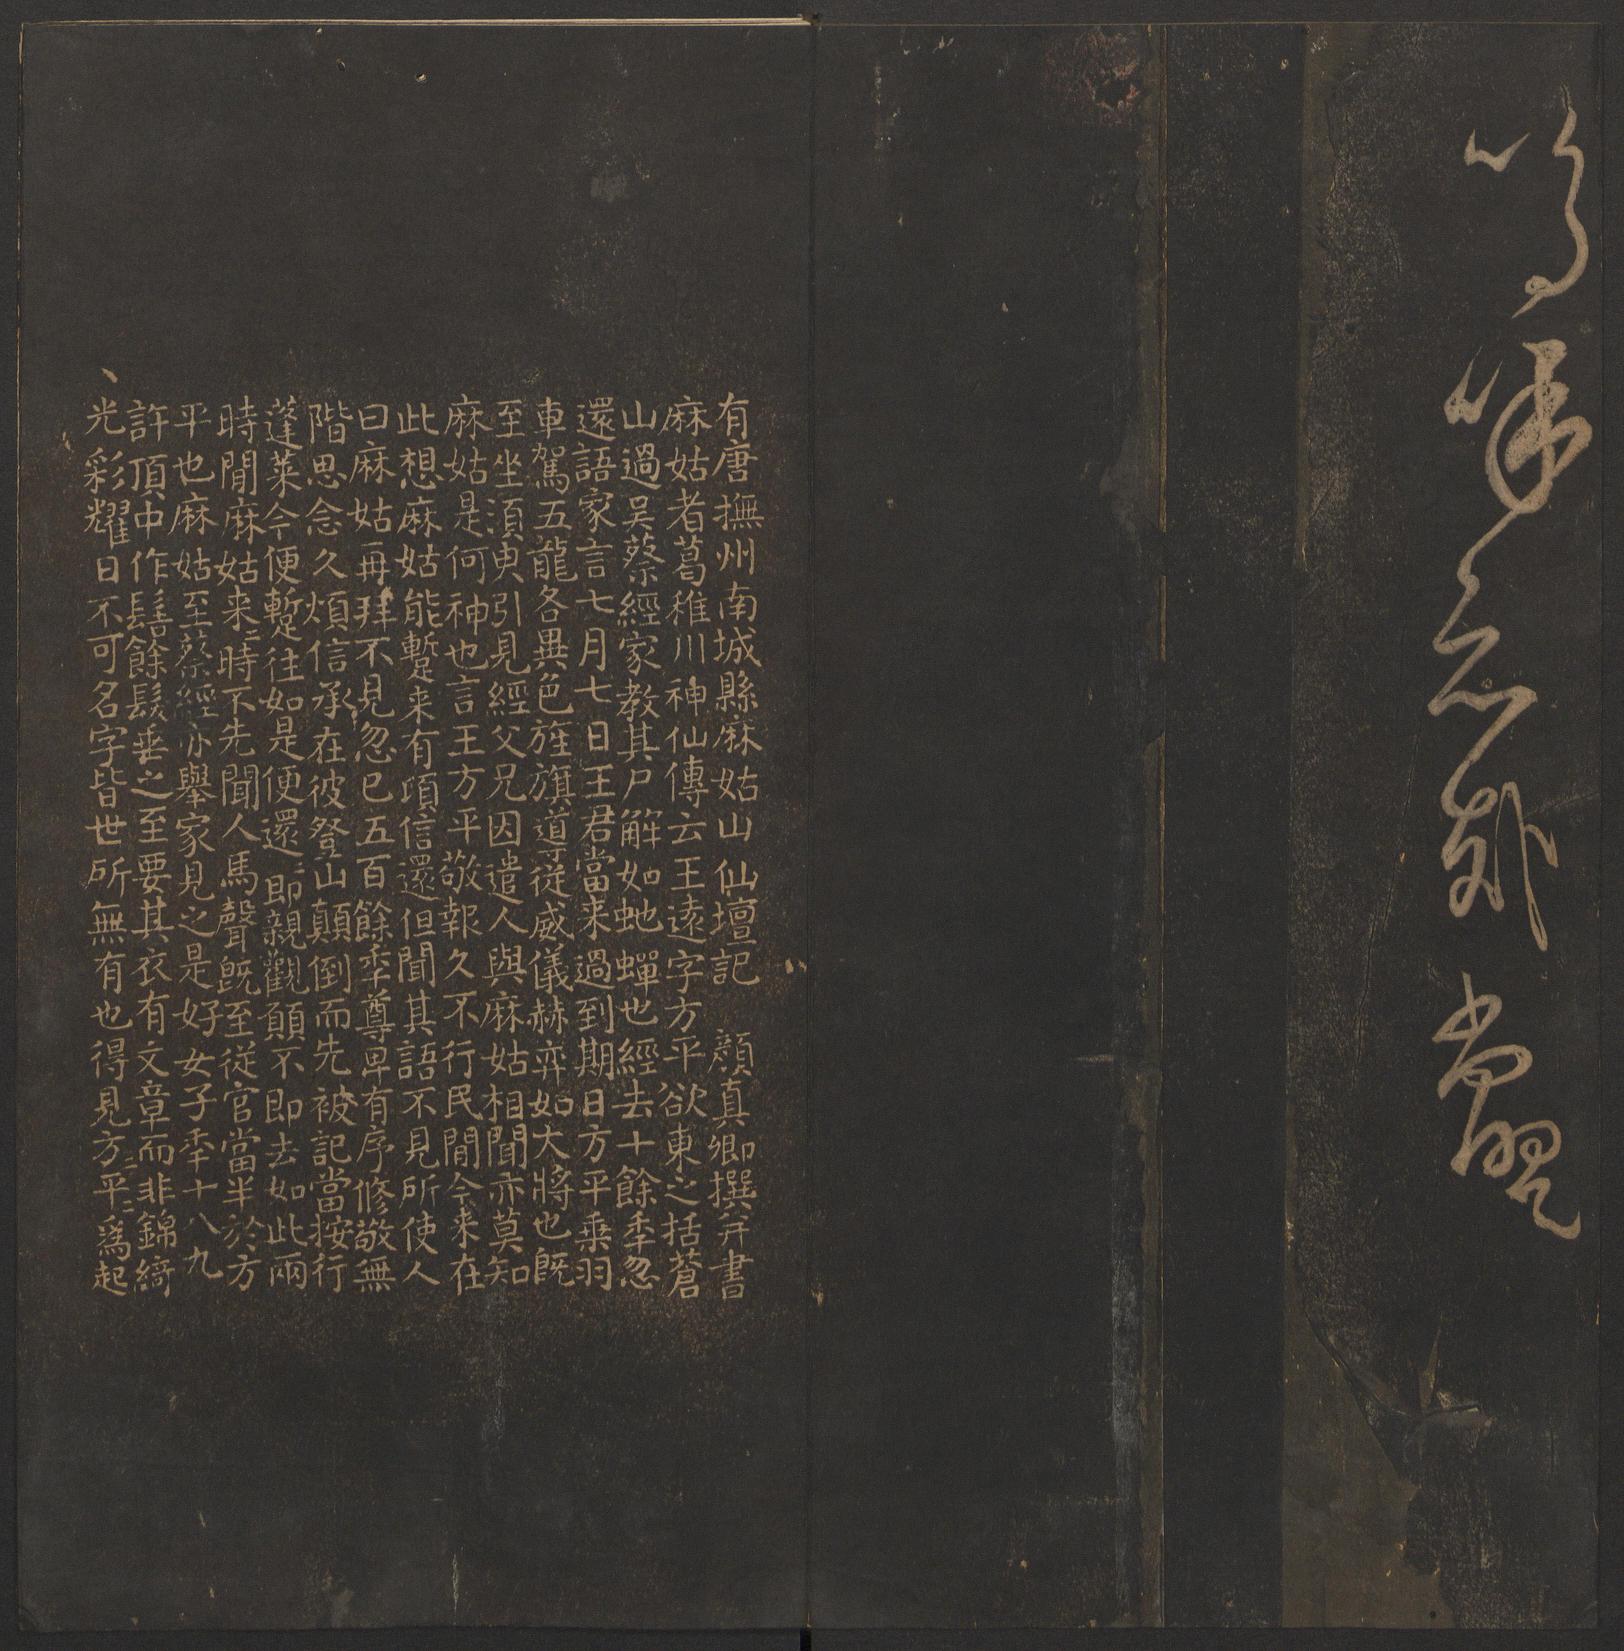 嗚呼
有唐撫州南城縣麻姑山仙壇記 顏真卿撰并書
麻姑者葛稚川神仙傳云王遠字方平欲東之括蒼
山過吳蔡經家教其尸解如虵蟬也經去十餘秊忽
還語家言七月七日王君當来過到期日方平乗羽
車駕五龍各異色旌旗導従威儀赫弈如大將也旣
至坐須臾引見經父兄因遣人與麻姑相聞亦莫知
麻姑是何神也言王方平敬報久不行民間今来在
此想麻姑能蹔来有頃信還但聞其語不見所使人
曰麻姑再拜不見忽已五百餘秊尊卑有序修敬無
階思念久煩信承在彼登山顛倒而先被記當按行
蓬萊今便蹔往如是便還〻即親觀願不即去如此兩
時間麻姑来〻時不先聞人馬聲旣至従官當半於方
平也麻姑至蔡經亦舉家見之是好女子秊十八九
許頂中作髻餘髮垂之至要其衣有文章而非錦綺
光彩耀日不可名字皆世所無有也得見方〻平〻爲起